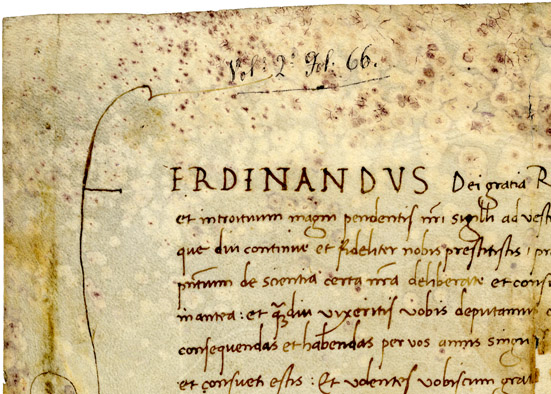 Vol: 2º Fol: 66.
FERDINANDUS Dei gratia R
et introituum magni pendentis nri sigilli ad vest
que diu continue et fideliter nobis prestitistis, pr
pntium de scientia certa nra deliberate et cons
inantea: et qdiu vixeritis vobis deputamus
consequendas et habendas per vos annis singu
et consueti estis: Et volentes vobiscum grat